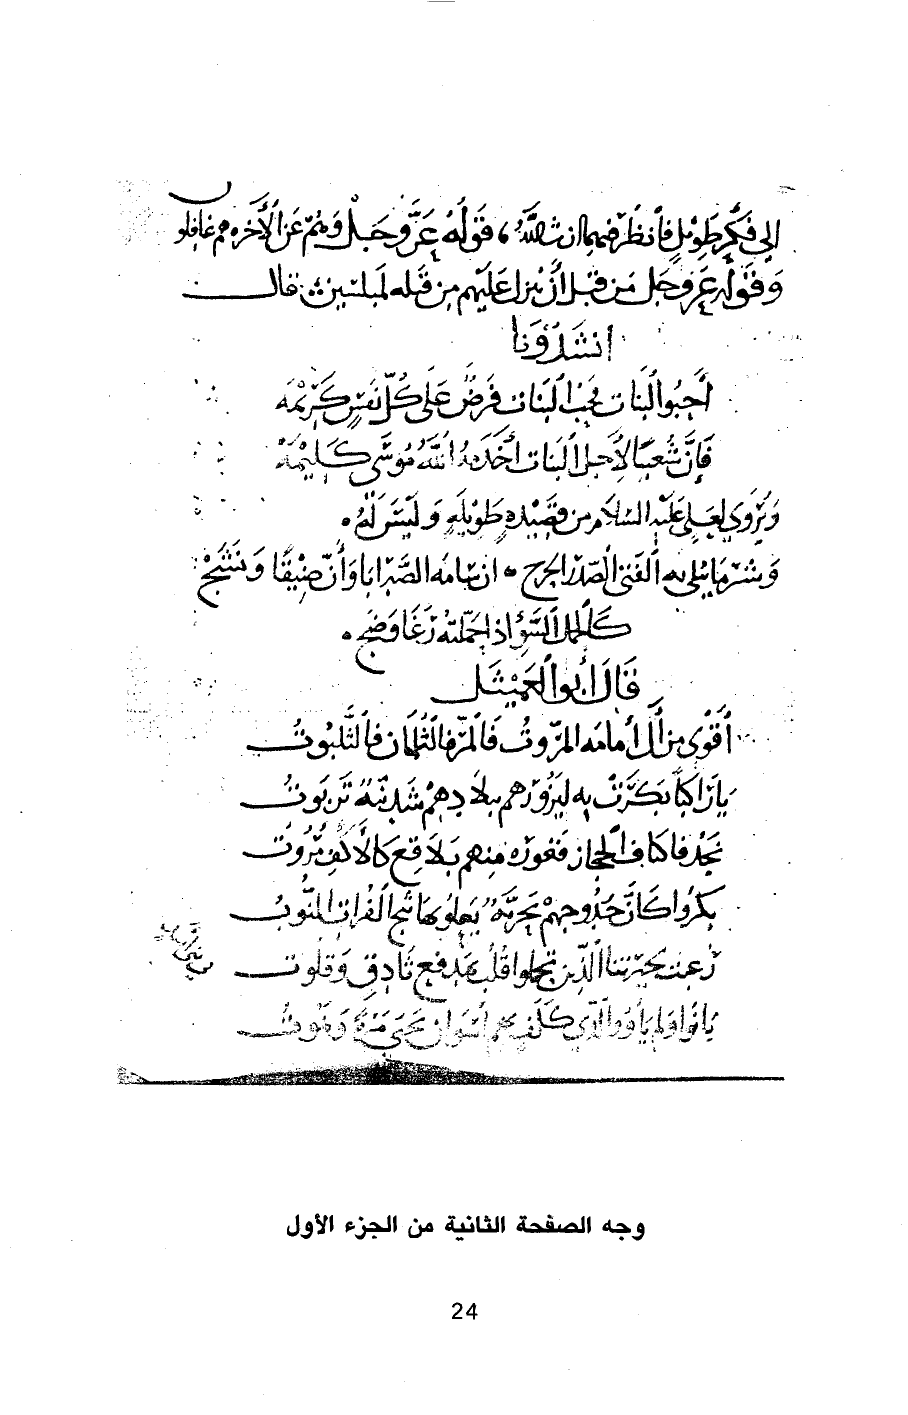 الى فكر طويل فانظر فيهما ان شاء الله، قوله عز وجل وهم عن الآخره هم غافلون
وقوله عز وجل من قبل أن ينزل عليهم من قبله لمبلسين قال
انشدونا
أحبوا البنات فحب البنات فرض على كل نفس كريمه
فإن شعيبا لأجل البنات أخدمه الله موسى كليمه
ويروى لعلي عليه السلام من قصيده طويله وليس له
وشر ما يلي به الفتى الصدر الحرج ان سامه الصبر ابا وأن ضيقا ونشج
كالجمل السوء اذا حملته رغا وضج
قال أبو العميثل
أقوى من آل أمامه المروت فالمرفالثلمان فالثلبوت
يا راكبا بكرت به ليزورهم ببلادهم شدنية تربوت
نجد فاكناف الحجاز فغوره منهم بلاقع كالأكف مروت
بكروا كأن حدوجهم بحرية يعلو بها ثبج الفرات النوت
زعمت بحيرتنا الذين تحملوا قلب بمدفع ثادق وقلوت
بانوا ولم يأووا لذي كلف بهم
وجه الصفحة الثانية من الجزء الأول
24